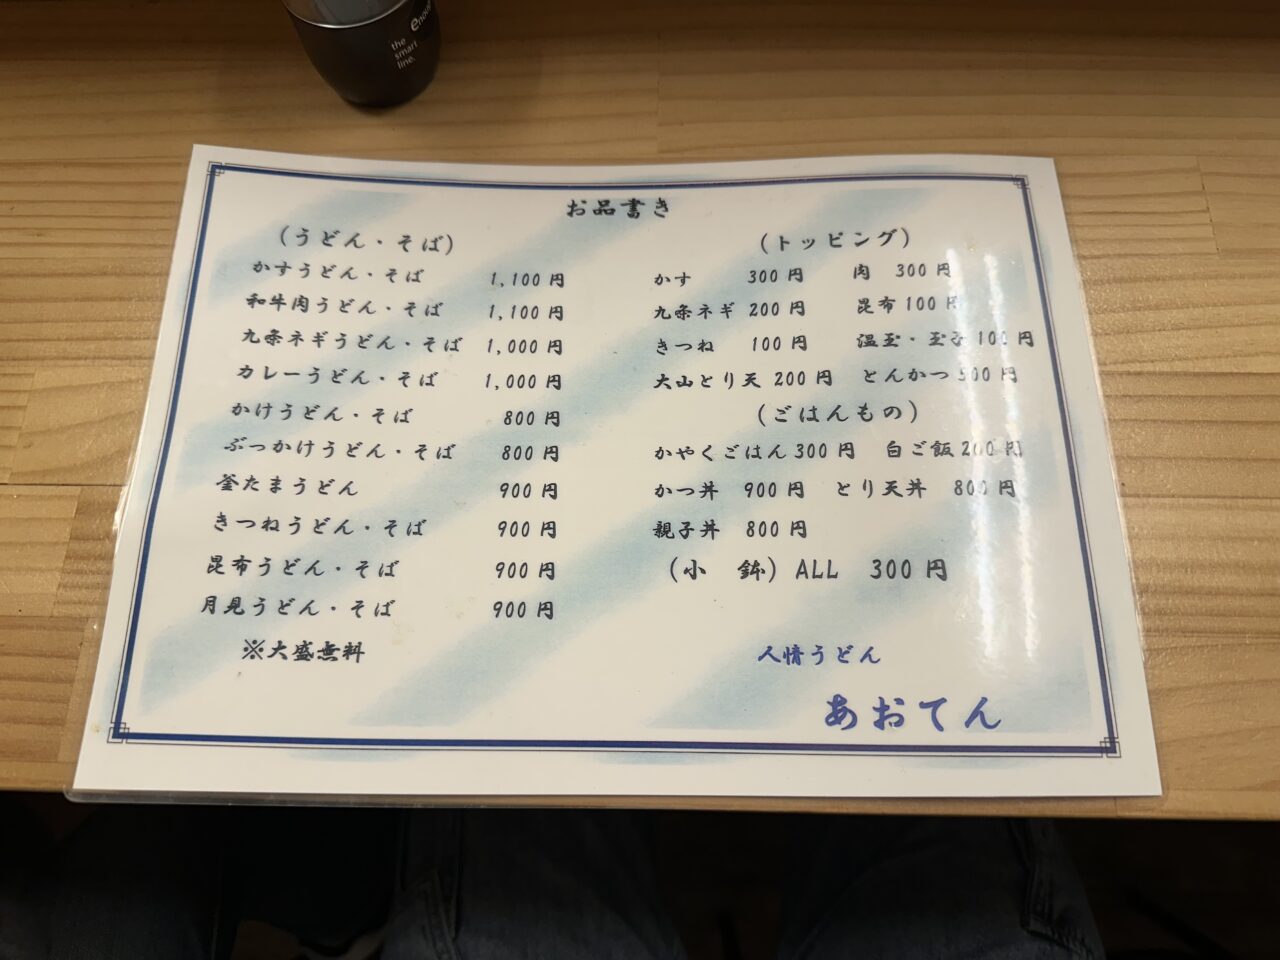 enough
the
smart
line.
お品書き
(うどん・そば)
かすうどん・そば 1,100円
和牛肉うどん・そば 1,100円
九条ネギうどん・そば 1,000円
カレーうどん・そば 1,000円
かけうどん・そば 800円
ぶっかけうどん・そば 800円
釜たまうどん 900円
きつねうどん・そば 900円
昆布うどん・そば 900円
月見うどん・そば 900円
※大盛無料
(トッピング)
かす 300円 肉 300円
九条ネギ 200円 昆布 100円
きつね 100円 温玉・玉子 100円
大山とり天 200円 とんかつ 500円
(ごはんもの)
かやくごはん 300円 白ご飯 200円
かつ丼 900円 とり天丼 800円
親子丼 800円
(小 鉢) ALL 300円
人情うどん
あおてん